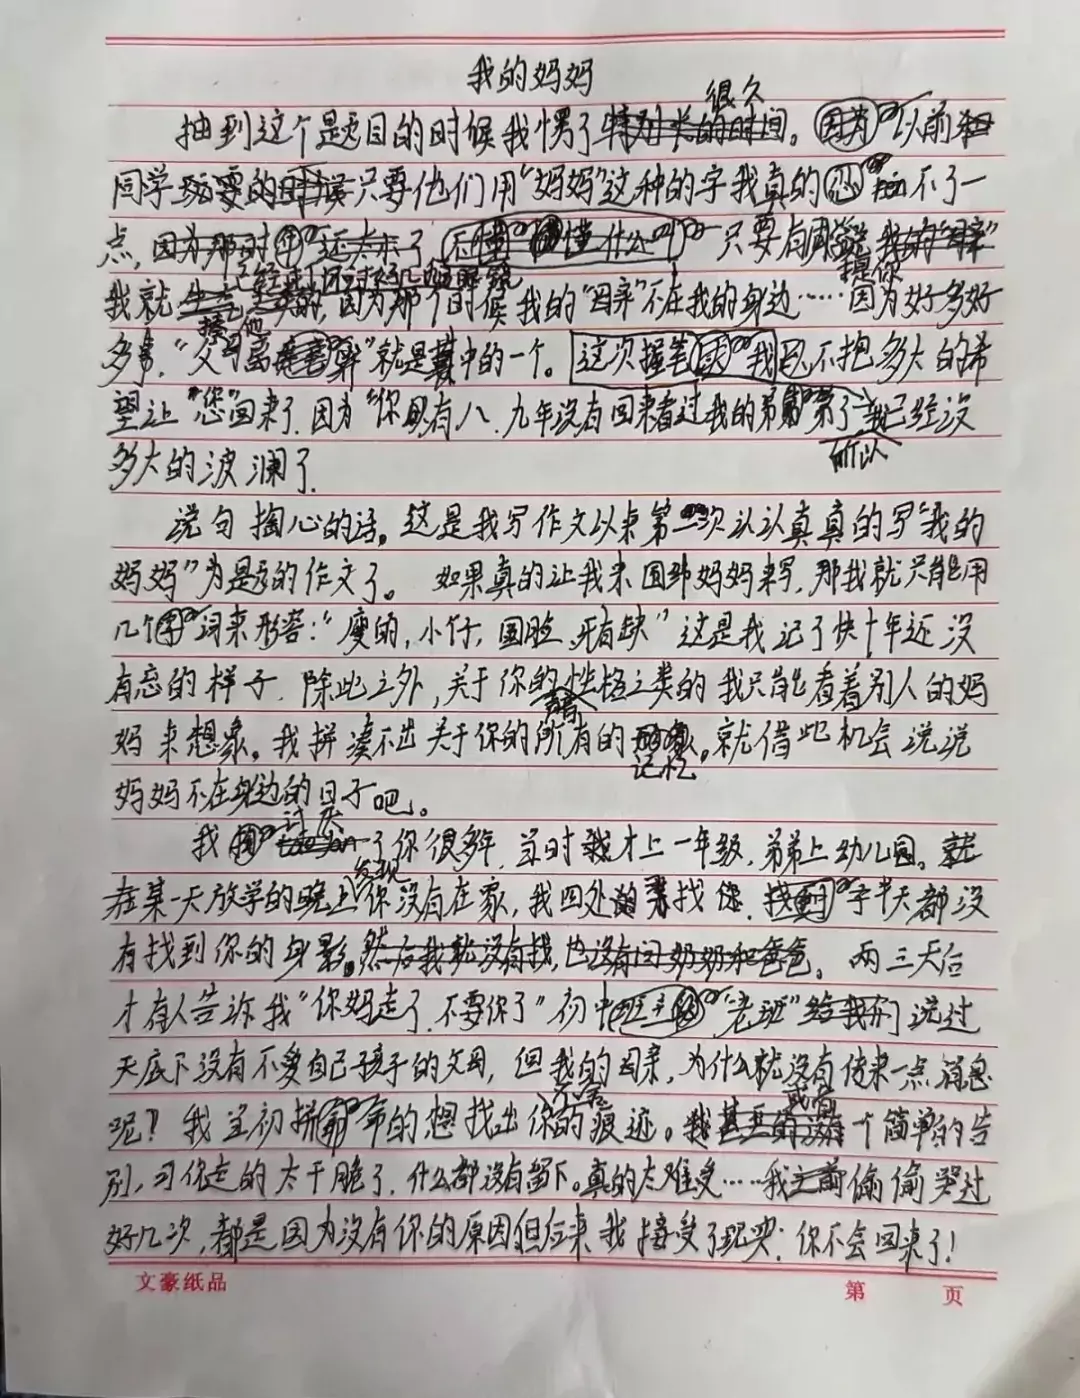 我的妈妈
很久
抽到这个题目的时候我愣了特别长的时间。因为以前和
同学玩耍的时候只要他们用“妈妈”这种的字我真的忍不了一
点,因为那时还太小了 不懂什么 只要有同学提我的“母亲”
我就生气 因为那个时候我的“母亲”不在我的身边……因为好多好
多事,“父母离异”就是其中的一个。这次握笔 我已不抱多大的希
望让“您”回来了,因为“你”有八、九年没有回来看过我的弟弟了我已经没
所以
多大的波澜了.
说句掏心的话。这是我写作文以来第一次认认真真的写“我的
妈妈”为题的作文了。如果真的让我来回忆妈妈来写,那我就只能用
几个词来形容:“瘦的,小仔,圆脸,牙有缺”这是我记了快十年还没
有忘的样子.除此之外,关于你的性格之类的我只能看着别人的妈
声音
妈来想象。我拼凑不出关于你的所有的 。就借此机会说说
记忆
妈妈不在身边的日子吧。
讨厌
我 了你很多年,当时我才上一年级,弟弟上幼儿园。就
发现
在某一天放学的晚上你没有在家,我四处的寻找您,找了半天都没
有找到你的身影。然后我就没有找,也没有问奶奶和爸爸。两三天后
才有人告诉我“你妈走了,不要你了”初中班主任“老班”给我们说过
天底下没有不爱自己孩子的父母,但我的母亲,为什么就没有传来一点消息
呢?我当初拼命的想找出你的痕迹。我甚至的没有一个简单的告
别,可你走的太干脆了,什么都没有留下。真的太难受……我之前偷偷哭过
好几次,都是因为没有你的原因但后来我接受了现实:你不会回来了!
文豪纸品
第 页